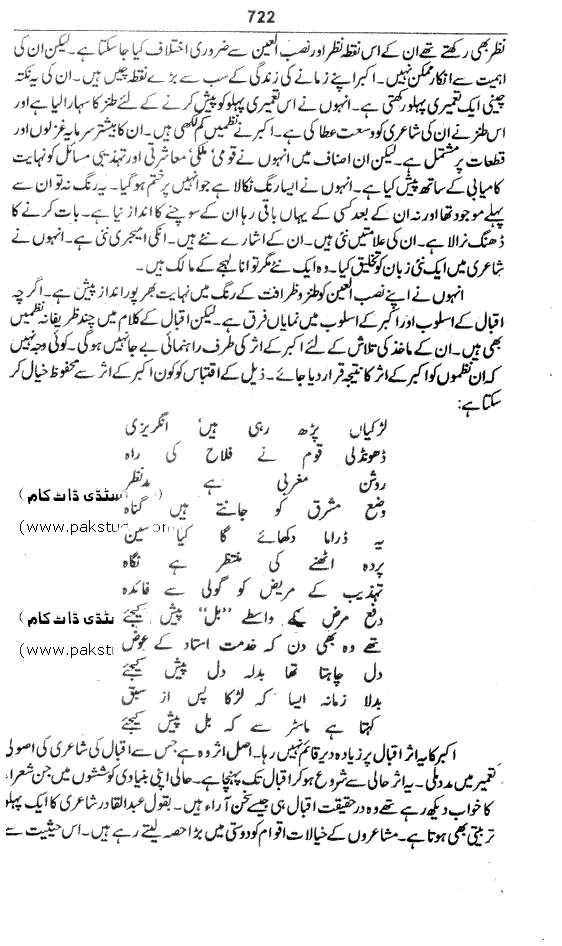 722
نظر بھی رکھتے تھے ان کے اس نقطہ نظر اور نصب العین سے ضروری اختلاف کیا جا سکتا ہے۔ لیکن ان کی
اہمیت سے انکار ممکن نہیں۔ اکبر اپنے زمانے کی زندگی کے سب سے بڑے نقطہ چیں ہیں۔ ان کی یہ نکتہ
چینی ایک تعمیری پہلو رکھتی ہے۔ انہوں نے اس تعمیری پہلو کو پیش کرنے کے لئے طنز کا سہارا لیا ہے اور
اس طنز نے ان کی شاعری کو وسعت عطا کی ہے۔ اکبر نے نظمیں کم لکھی ہیں۔ ان کا بیشتر سرمایہ غزلوں اور
قطعات پر مشتمل ہے۔ لیکن ان اصناف میں انہوں نے قومی’ ملکی’ معاشرتی اور تہذیبی مسائل کو نہایت
کامیابی کے ساتھ پیش کیا ہے۔ انہوں نے ایسا رنگ نکالا ہے جو انہیں پر ختم ہو گیا۔ یہ رنگ نہ تو ان سے
پہلے موجود تھا اور نہ ان کے بعد کسی کے یہاں باقی رہا ان کے سوچنے کا انداز نیا ہے۔ بات کرنے کا
ڈھنگ نرالا ہے۔ ان کی علامتیں نئی ہیں۔ ان کے اشارے نئے ہیں۔ انکی امیجری نئی ہے۔ انہوں نے
شاعری میں ایک نئی زبان کو تخلیق کیا۔ وہ ایک نئے مگر توانا لہجے کے مالک ہیں۔
انہوں نے اپنے نصب العین کو طنز و ظرافت کے رنگ میں نہایت بھرپور انداز پیش ہے۔ اگرچہ
اقبال کے اسلوب اور اکبر کے اسلوب میں نمایاں فرق ہے۔ لیکن اقبال کے کلام میں چند ظریفانہ نظمیں
بھی ہیں۔ ان کے ماخذ کی تلاش کے لئے اکبر کے اثر کی طرف راہنمائی بے جا نہیں ہو گی۔ کوئی وجہ نہیں
کہ ان نظموں کو اکبر کے اثر کا نتیجہ قرار دیا جائے۔ ذیل کے اقتباس کو کون اکبر کے اثر سے محفوظ خیال کر
سکتا ہے:
لڑکیاں پڑھ رہی ہیں’ انگریزی
ڈھونڈلی قوم نے فلاح کی راہ
روش مغربی ہے مدنظر
وضع مشرق کو جانتے ہیں گناہ
یہ ڈراما دکھائے گا کیا سین
پردہ اٹھنے کی منتظر ہے نگاہ
تہذیب کے مریض کو گولی سے فائدہ
دفع مرض کے واسطے “بل” پیش کیجئے
تھے وہ بھی دن کہ خدمت استاد کے عوض
دل چاہتا تھا ہدیہ دل پیش کیجئے
بدلا زمانہ ایسا کہ لڑکا پس از سبق
کہتا ہے ماسٹر سے کہ بل پیش کیجئے
سٹڈی ڈاٹ کام )
(www.pakstu .om
ٹڈی ڈاٹ کام )
(www.pakstu
اکبر کا یہ اثر اقبال پر زیادہ دیر قائم نہیں رہا۔ اصل اثر وہ ہے جس سے اقبال کی شاعری کی اصولی
تعمیر میں مدد ملی۔ یہ اثر حالی سے شروع ہو کر اقبال تک پہنچا ہے۔ حالی اپنی بنیادی کوششوں میں جن شعراء
کا خواب دیکھ رہے تھے وہ درحقیقت اقبال ہی جیسے سخن آراء ہیں۔ بقول عبدالقادر شاعری کا ایک پہلو
تربیتی بھی ہوتا ہے۔ مشاعروں کے خیالات اقوام کو دوستی میں بڑا حصہ لیتے رہے ہیں۔ اس حیثیت سے